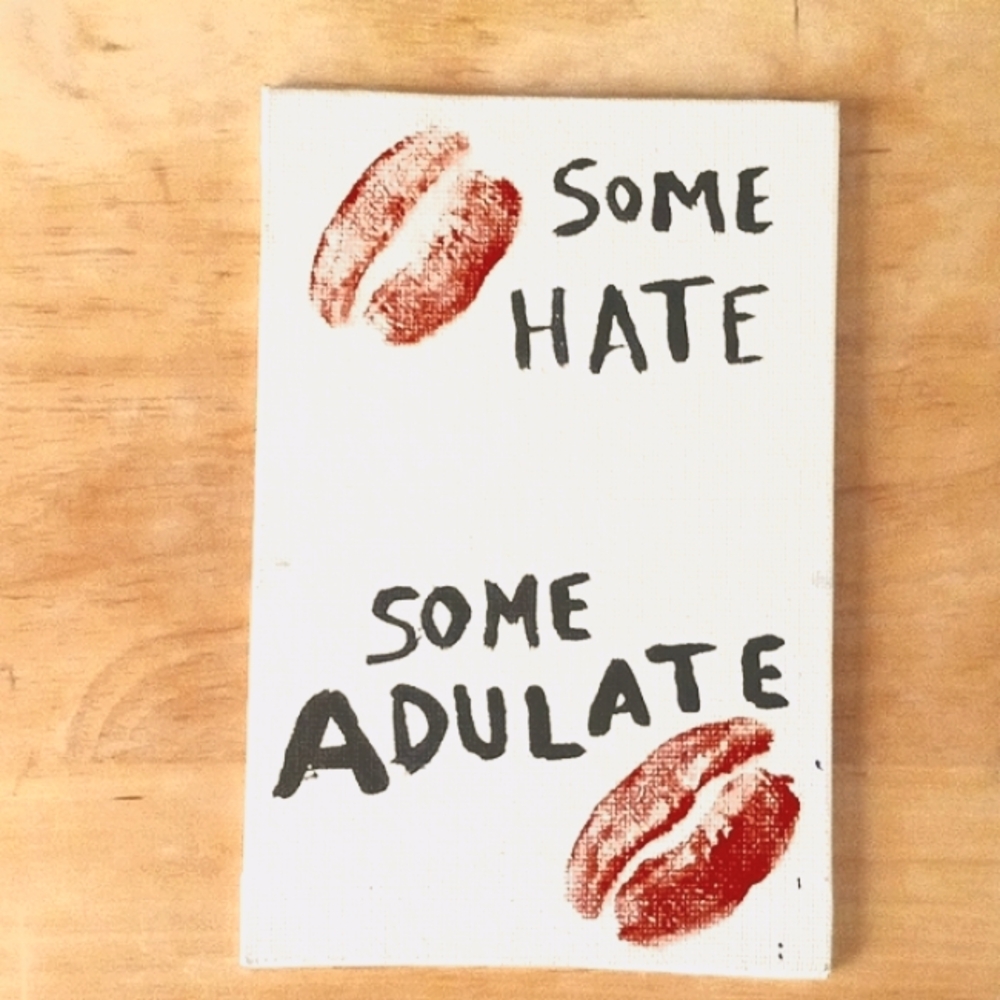 SOME
HATE
SOME
ADULATE